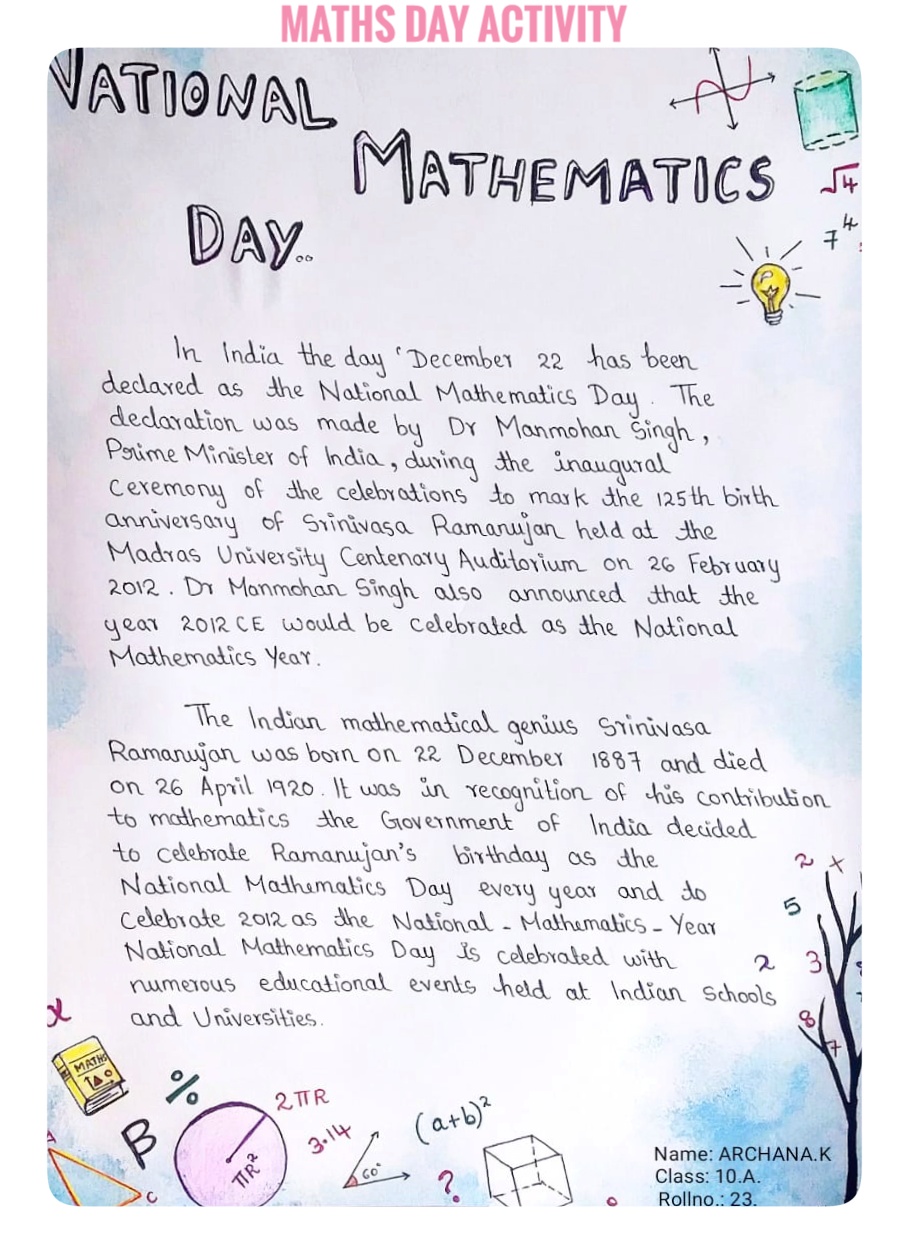 MATHS DAY ACTIVITY
NATIONAL
MATHEMATICS
DAY..
√4
7⁴
In India the day 'December 22 has been
declared as the National Mathematics Day. The
declaration was made by Dr Manmohan Singh,
Prime Minister of India, during the inaugural
Ceremony of the celebrations to mark the 125th birth
anniversary of Srinivasa Ramanujan held at the
Madras University Centenary Auditorium on 26 February
2012. Dr Manmohan Singh also announced that the
year 2012 CE would be celebrated as the National
Mathematics Year.
The Indian mathematical genius Srinivasa
Ramanujan was born on 22 December 1887 and died
on 26 April 1920. It was in recognition of his contribution
to mathematics the Government of India decided
to celebrate Ramanujan's birthday as the
National Mathematics Day every year and to
Celebrate 2012 as the National - Mathematics - Year
National Mathematics Day is celebrated with
numerous educational events held at Indian Schools
and Universities.
2 +
5
2 3
8
7
x
MATHS
%
B
2πR
πR²
3.14
60°
(a+b)²
?
A
C
Name: ARCHANA.K
Class: 10.A.
Rollno.: 23.